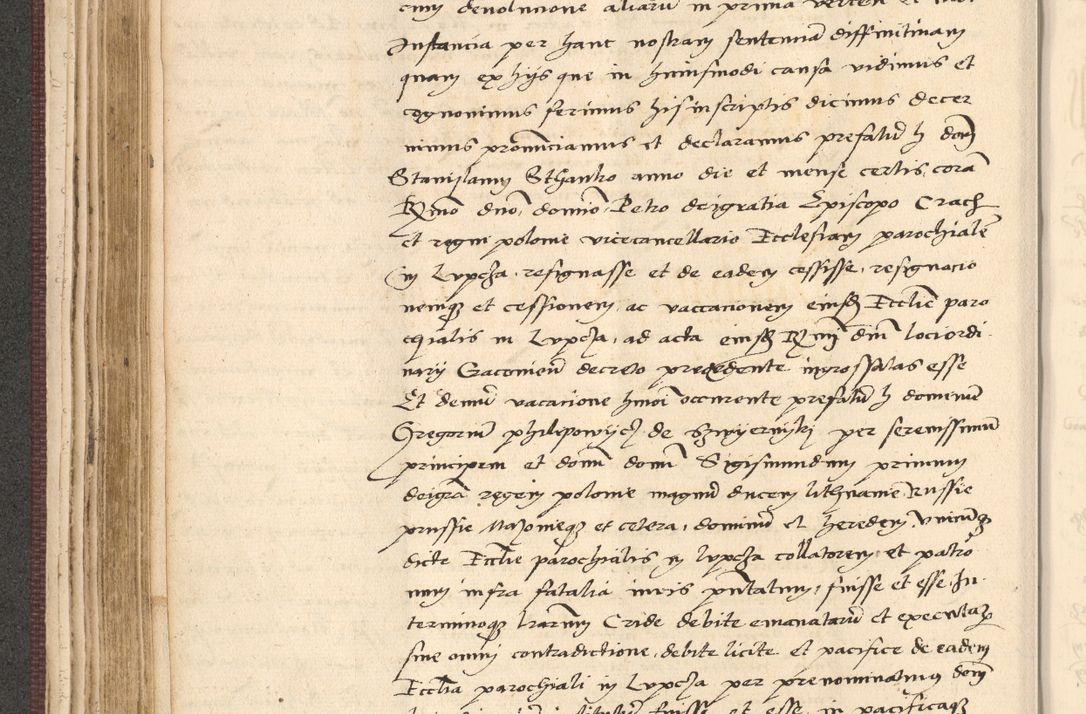 Instancia per hanc nostram sententiā diffinitivam
quam ex hijs que in huiusmodi causa vidimus et
cognovimus ferimus his in scriptis dicimus decer
nimus pronūciamus et declaramus prefatū h domī
Stanislaum Sthanko anno die et mense certis, corā
Rmo dno, domīo Petro dei gratia Episcopo Crach
et regni polonie vicecancellario Ecclesiam parochialē
in Lypcza, resignasse et de eadem cessisse, resignacio
nemq3 et cessionem, ac vaccacionem eiusd Ecclie paro
chialis in Lypcza, ad acta eiusd Rmi dni loci ordi
narij Cracovien decreto precedente ingrossatas esse
Et demū vacacione hmoi occurrente prefatū h dominū
Gregoriū philipowijcz de per serenissimū
principem et domī domī Sigismundum primum
dei grā regem polonie magnū ducem lithuanie, Russie
prussie Mazovieq3 et cetera, dominū et heredem
dicte Ecclie parochialis in lypcza collatorem et patro
num infra fatalia iuris pntatum, fuisse et esse, In
terminoq3 lrarum Cride debite emanatarū et executaꝝ
sine omni contradictione, debite licite et pacifice de eadem
Ecclia parochiali in Lypcza per prenominatum domī
fuisse et esse, in pacificaq3